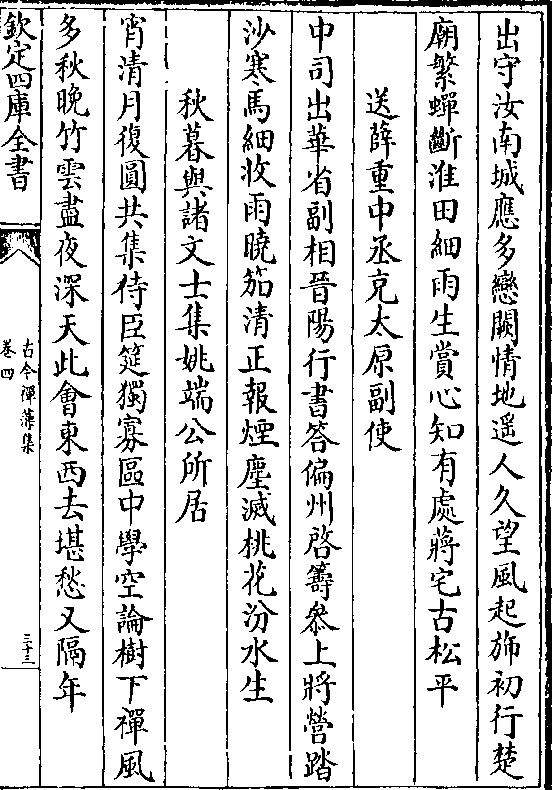 出守汝南城應多戀闕情地遥人久望風起斾初行楚
廟繁蟬斷淮田細雨生賞心知有處蔣宅古松平
送薛重中丞充太原副使
中司出華省副相晉陽行書答偏州啓籌叅上將營踏
沙寒馬細收雨曉笳清正報煙塵滅桃花汾水生
秋暮與諸文士集姚端公所居
宵清月復圓共集侍臣筵獨寡區中學空論樹下禪風
多秋晚竹雲盡夜深天此會東西去堪愁又隔年
欽定四庫全書
古今禪藻集
卷四
三十三